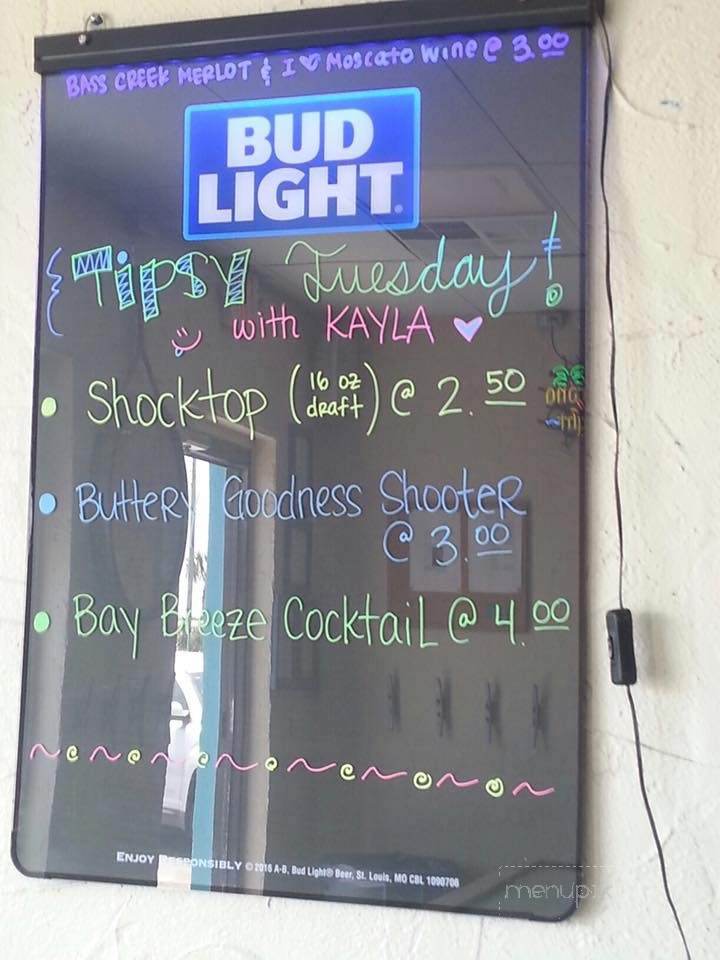 BASS CREEK MERLOT & I ♡ Moscato Wine @ 3.00
BUD
LIGHT.
{ Tipsy Tuesday!
with KAYLA ♥
• Shocktop (16 oz draft) @ 2.50
• Buttery Goodness Shooter
@ 3.00
• Bay Breeze Cocktail @ 4.00
ENJOY RESPONSIBLY © 2016 A-B, Bud Light® Beer, St. Louis, MO CBL 1090706